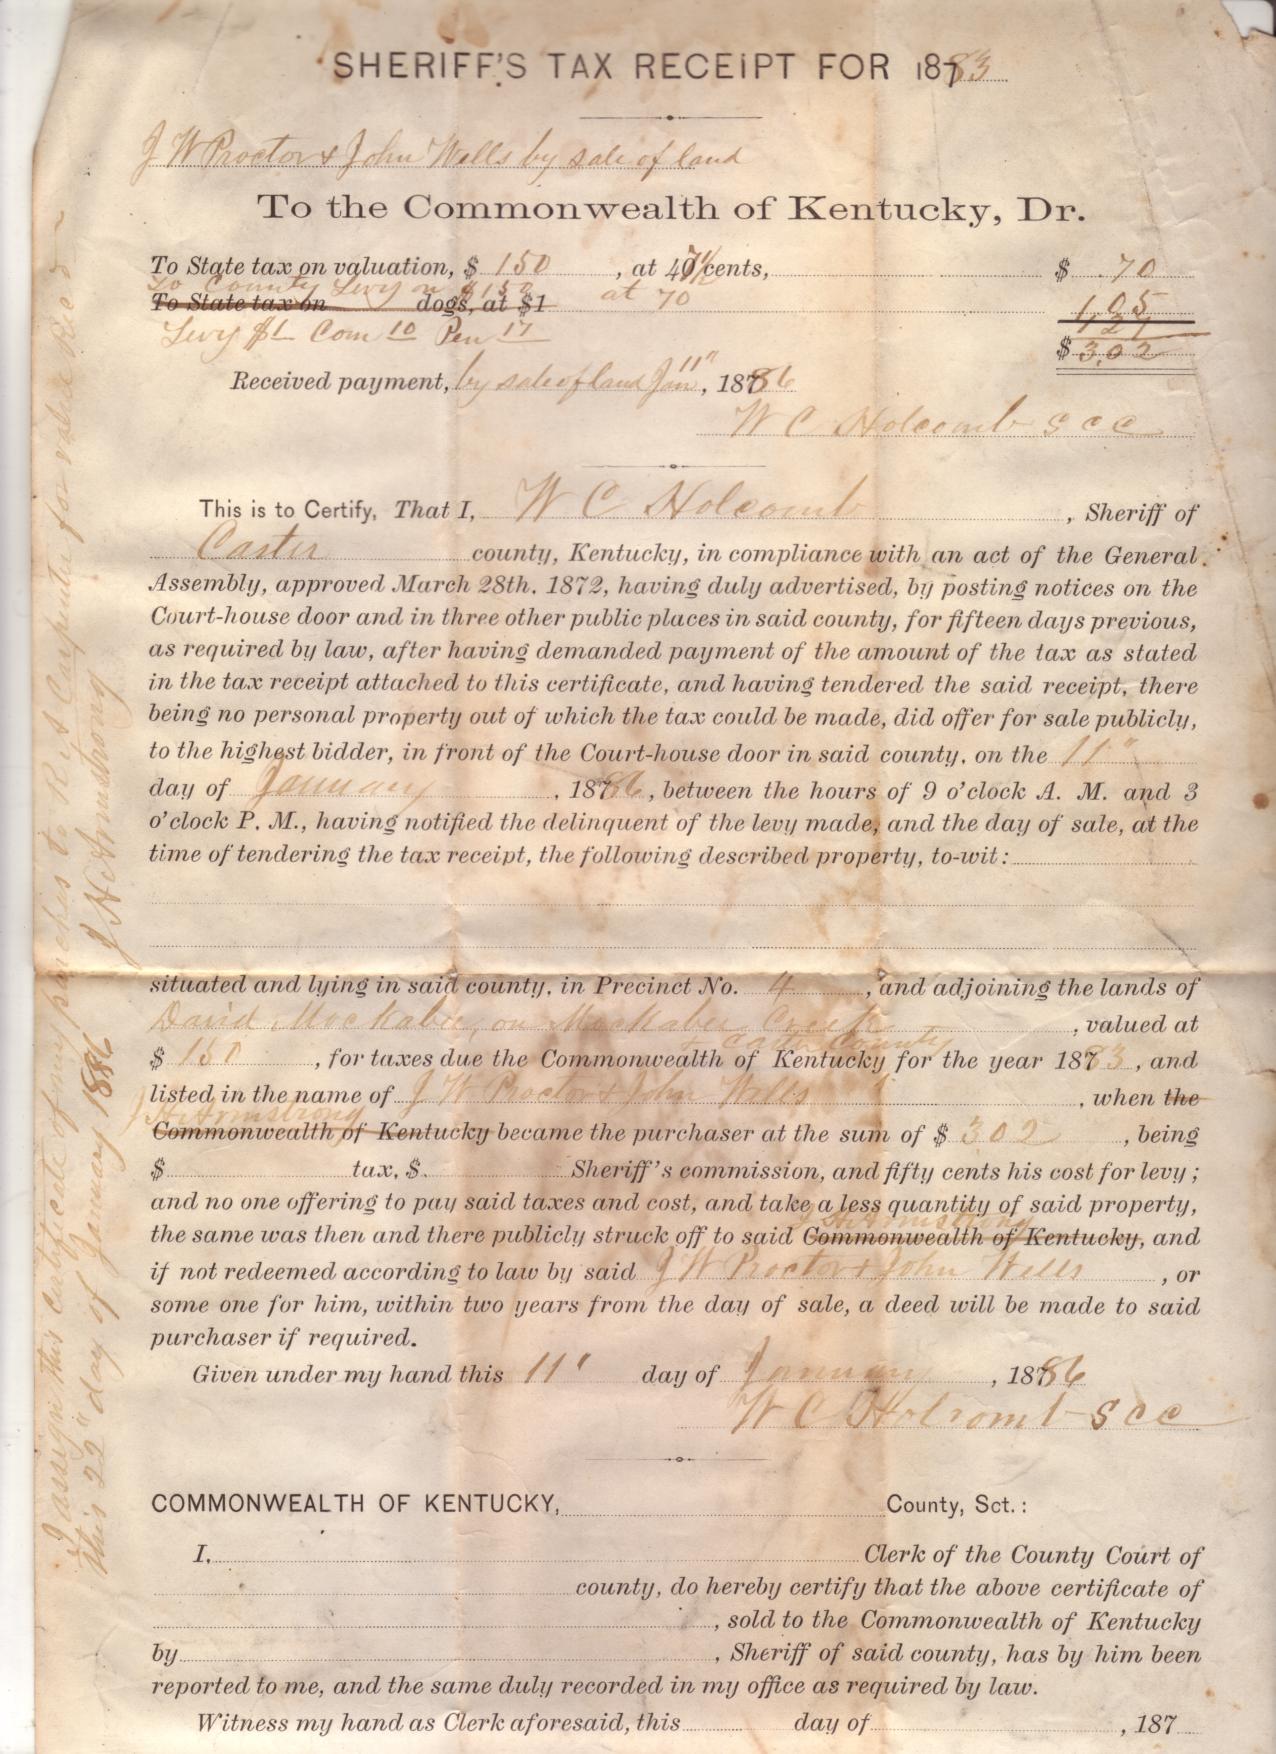 SHERIFF'S TAX RECEIPT FOR 1883
J W Proctor & John Wells by sale of land
To the Commonwealth of Kentucky, Dr.
To State tax on valuation, $ 150 , at 47½ cents, $ .70
To County Levy on $150 at 70 1.05
To State tax on dogs, at $1
Levy $1 Com 10 Pen 17 1.27
$ 3.02
Received payment, by sale of land Jan 11", 1886
W C Holcomb S C C
This is to Certify, That I, W C Holcomb , Sheriff of
Carter county, Kentucky, in compliance with an act of the General
Assembly, approved March 28th, 1872, having duly advertised, by posting notices on the
Court-house door and in three other public places in said county, for fifteen days previous,
as required by law, after having demanded payment of the amount of the tax as stated
in the tax receipt attached to this certificate, and having tendered the said receipt, there
being no personal property out of which the tax could be made, did offer for sale publicly,
to the highest bidder, in front of the Court-house door in said county, on the 11"
day of January , 1886, between the hours of 9 o'clock A. M. and 3
o'clock P. M., having notified the delinquent of the levy made, and the day of sale, at the
time of tendering the tax receipt, the following described property, to-wit:
situated and lying in said county, in Precinct No. 4 , and adjoining the lands of
David Mockabee, on Mockabee Creek , valued at
& Carter County
$ 150 , for taxes due the Commonwealth of Kentucky for the year 1883, and
listed in the name of J W Proctor & John Wells , when the
J H Armstrong
Commonwealth of Kentucky became the purchaser at the sum of $ 302 , being
$ tax, $ Sheriff's commission, and fifty cents his cost for levy;
and no one offering to pay said taxes and cost, and take a less quantity of said property,
J H Armstrong
the same was then and there publicly struck off to said Commonwealth of Kentucky, and
if not redeemed according to law by said J W Proctor & John Wells , or
some one for him, within two years from the day of sale, a deed will be made to said
purchaser if required.
Given under my hand this 11" day of January , 1886
W C Holcomb S C C
COMMONWEALTH OF KENTUCKY, County, Sct.:
I, Clerk of the County Court of
county, do hereby certify that the above certificate of
, sold to the Commonwealth of Kentucky
by , Sheriff of said county, has by him been
reported to me, and the same duly recorded in my office as required by law.
Witness my hand as Clerk aforesaid, this day of , 187
I assign this certificate of my purchas to Carpenter for value Rec'd
this 22" day of January 1886 J H Armstrong